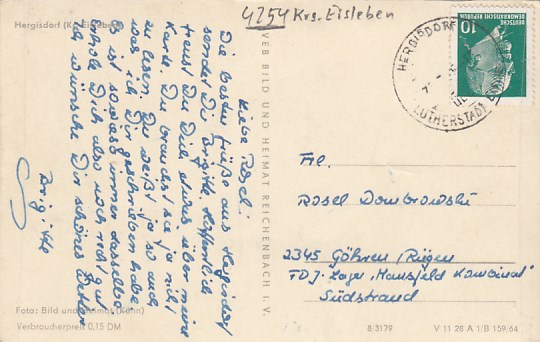 Hergisdorf (Kr. Eisleben)
4254 Krs. Eisleben
Liebe Rosel!
Die besten Grüße aus Hergisdorf
sendet Dir Brigitte. Hoffentlich
freust Du Dich etwas über meine
Karte. Du brauchst sie ja nicht
zu lesen. Du weißt ja so auch
was ich Dir geschrieben habe.
Es ist sowas immer dasselbe.
Erhole Dich also noch recht gut
Ich wünsche Dir schönes Wetter
Brigitte
Foto: Bild und Heimat (Kühn)
Verbraucherpreis 0,15 DM
VEB BILD UND HEIMAT REICHENBACH I. V.
DEUTSCHE
DEMOKRATISCHE REPUBLIK
10
HERGISDORF
LUTHERSTADT
Frl.
Rosel Dombrowski
2345 Göhren/Rügen
FDJ-Lager "Mansfeld Kombinat"
Südstrand
8/3179
V 11 28 A 1/B 159/64